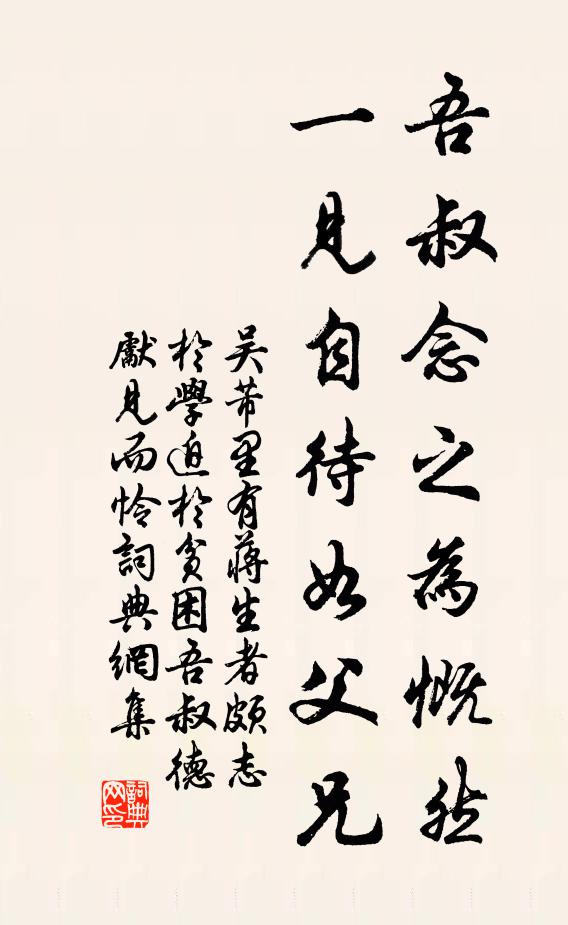 吾叔念之為慨然
一見自待如父兄
吳芾里有蔣生者頗志
於學迫於貧困吾叔德
獻見而怜詞典網集
詞典
网印